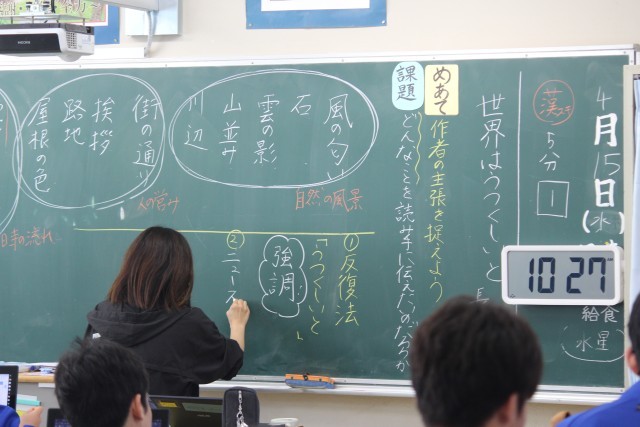 4月15日(水)
給食
水星
10 27
5分
1
世界はうつくしいと
めあて 作者の主張を捉えよう
課題 どんなことを読み手に伝えたいのだろうか
風の匂い
石
雲の影
山並み
川辺
自然の風景
街の通り
挨拶
路地
屋根の色
人の営み
①反復法
「うつくしいと」
強調
②ニュース